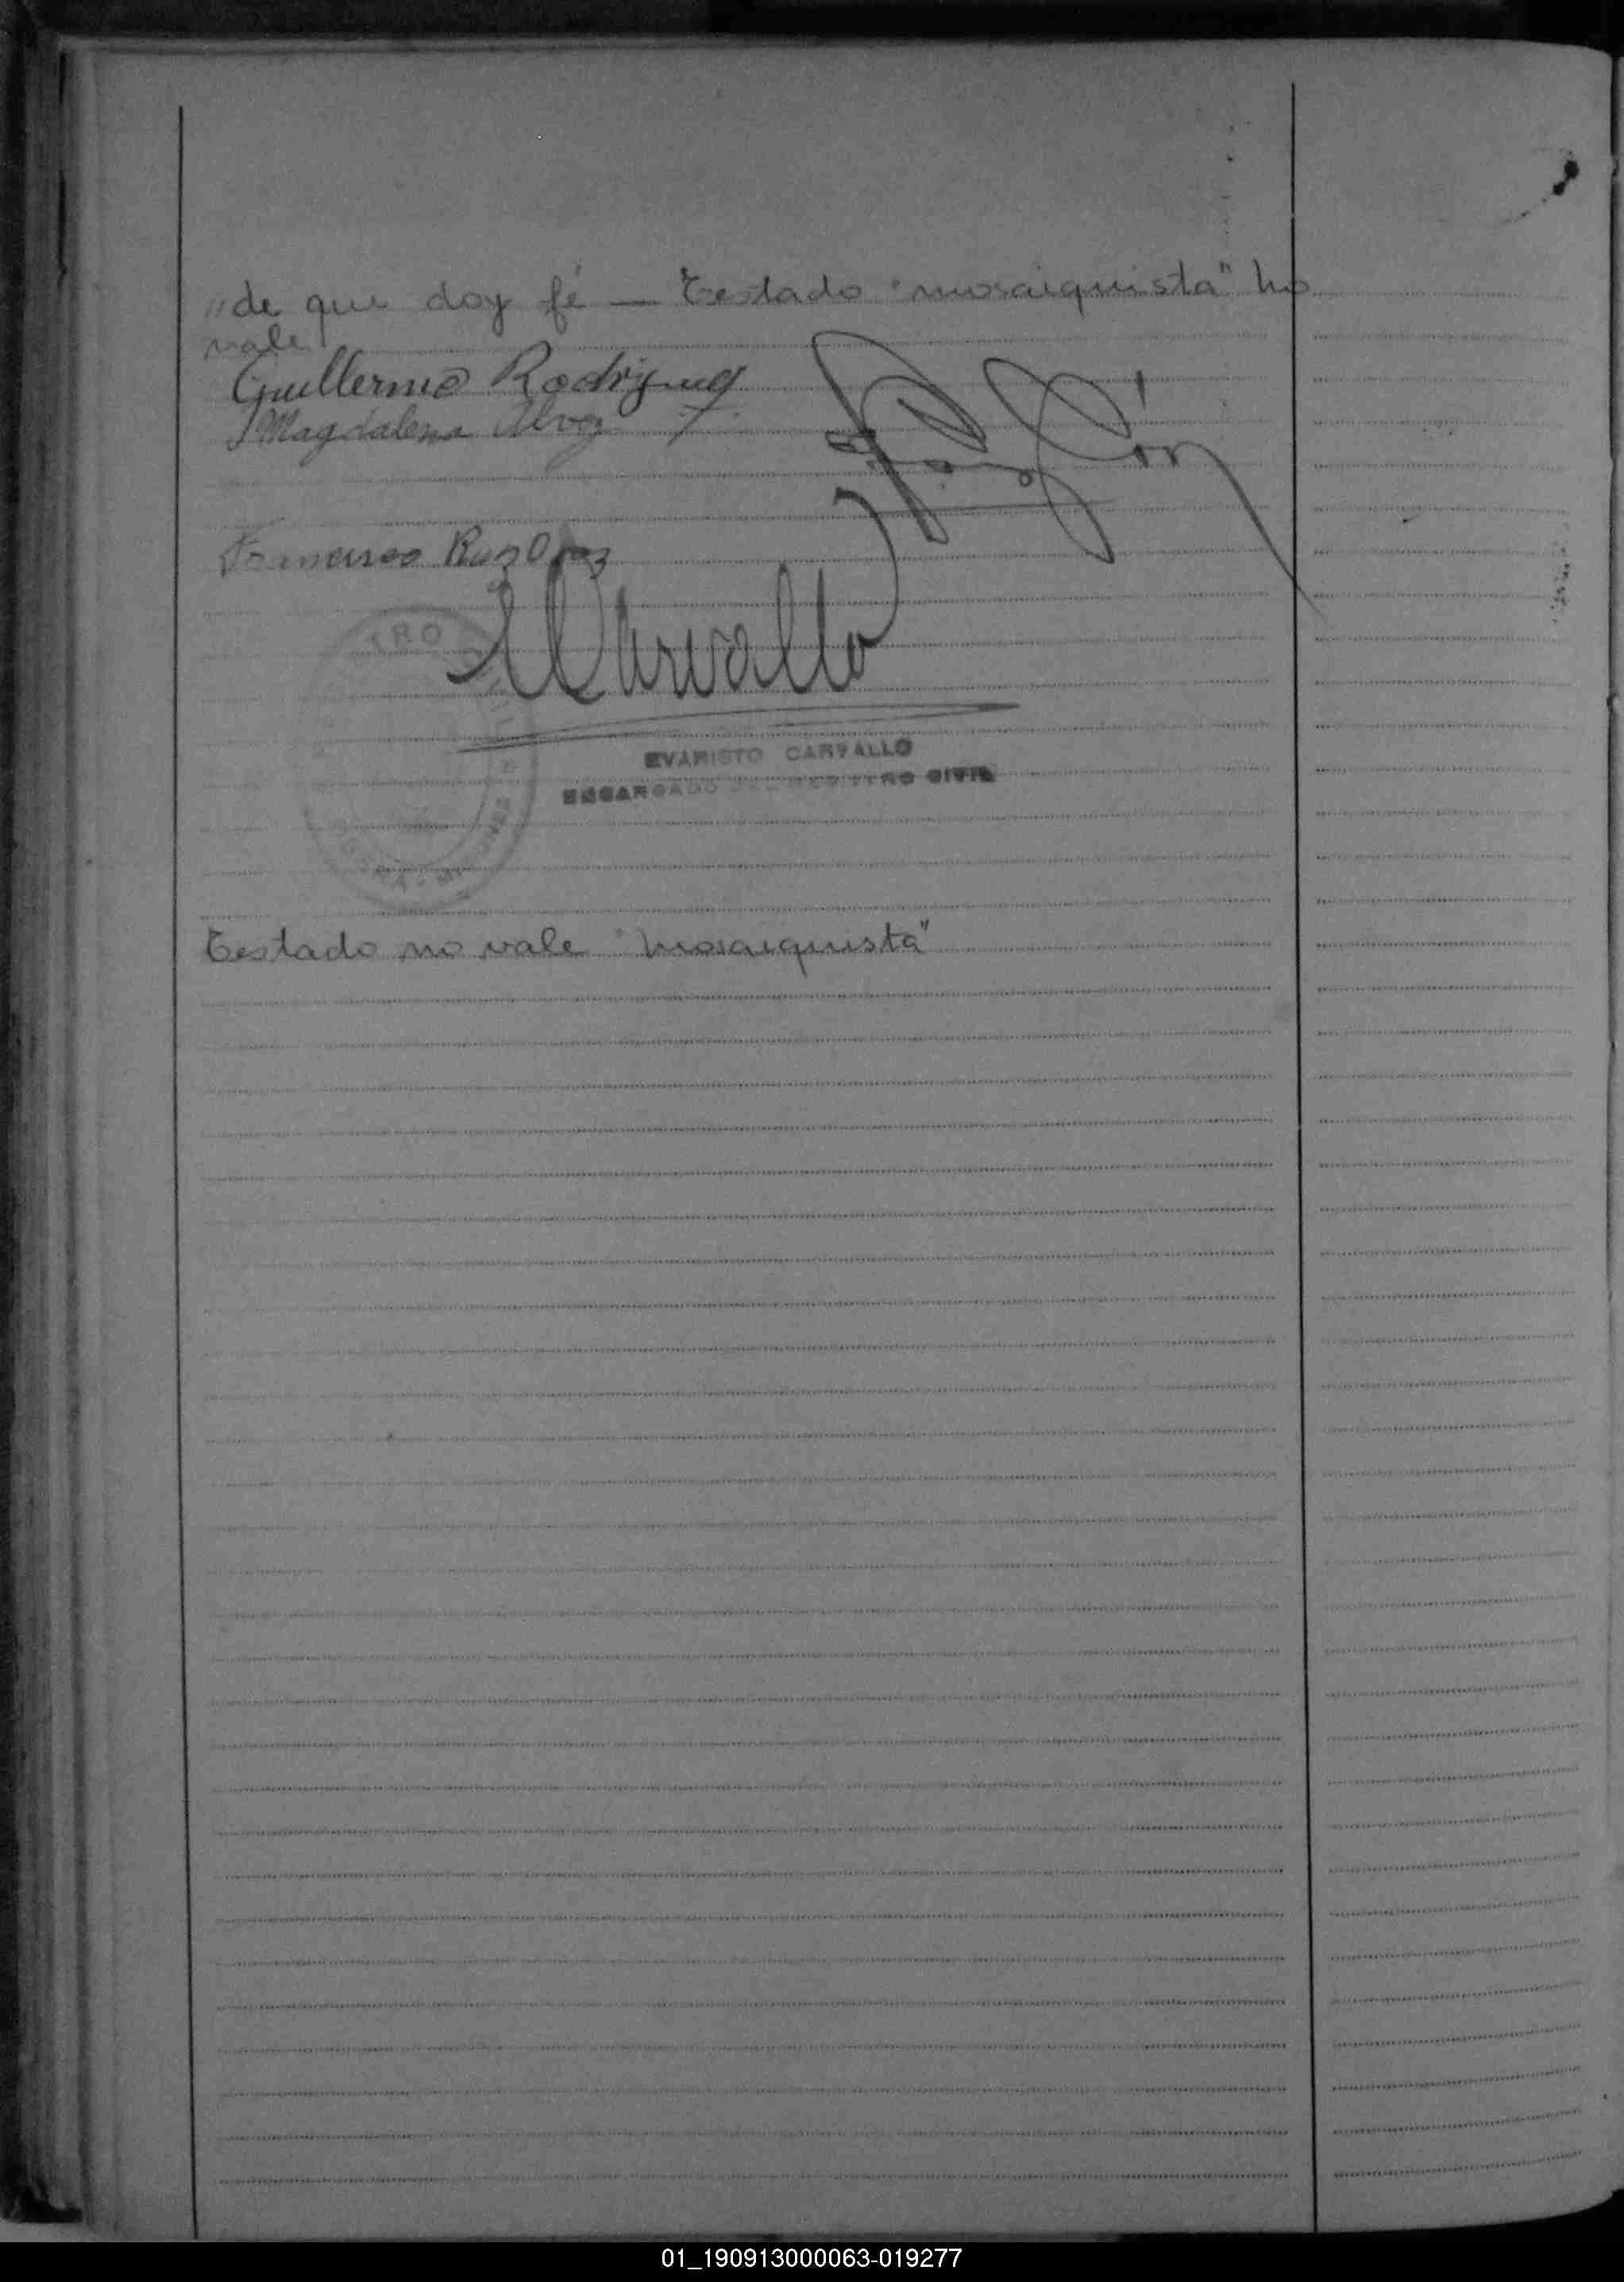 "de que doy fé — Testado "mosaiquista" no
vale
Guillermo Rodriguez
Magdalena Alvez
Francisco Ruiz
ECarvallo
EVARISTO CARVALLO
ENCARGADO DEL REGISTRO CIVIL
Testado no vale "mosaiquista"
01_190913000063-019277